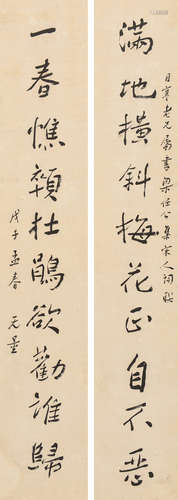 日章老兄屬書梁任公集宋人詞聯
滿地橫斜梅花正自不惡
一春憔顇杜鵑欲勸誰歸
戊子孟春
无量